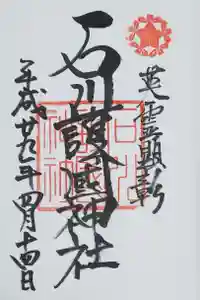 英霊顕彰
石川護國神社
平成廿九年四月十四日